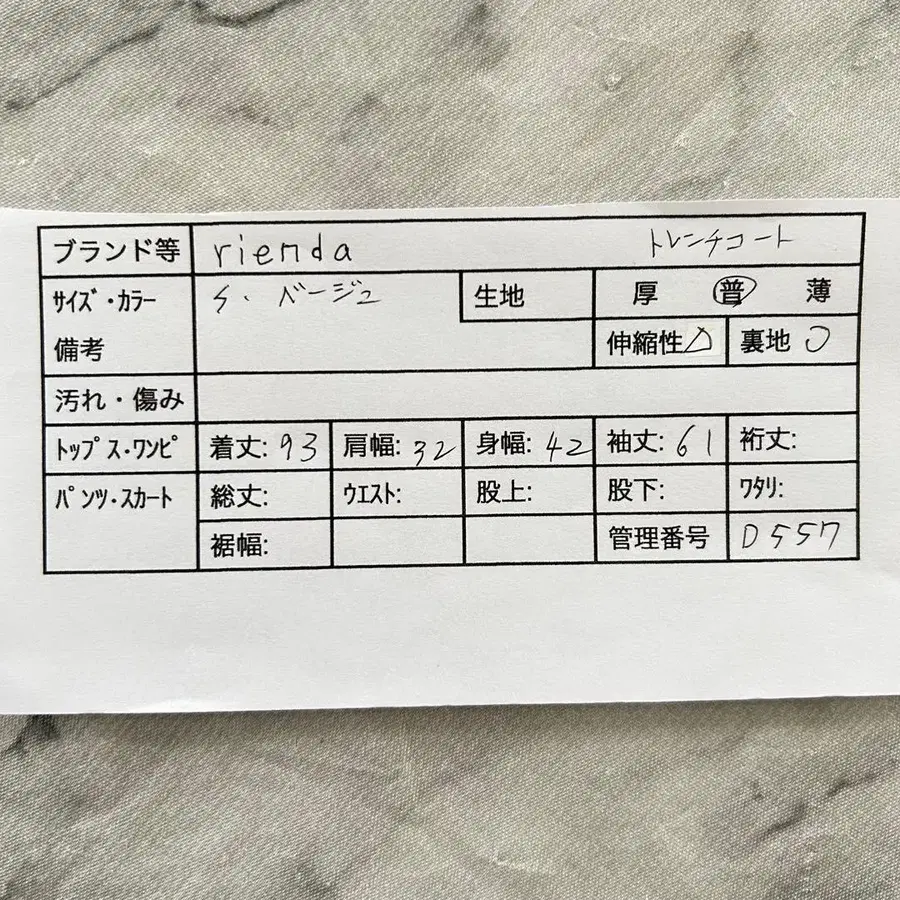 ブランド等 rienda トレンチコート
ｻｲｽﾞ・ｶﾗｰ S. ベージュ 生地 厚 普 薄
備考 伸縮性 △ 裏地 ○
汚れ・傷み
ﾄｯﾌﾟｽ・ﾜﾝﾋﾟ 着丈: 93 肩幅: 32 身幅: 42 袖丈: 61 裄丈:
ﾊﾟﾝﾂ・ｽｶｰﾄ 総丈: ｳｴｽﾄ: 股上: 股下: ﾜﾀﾘ:
裾幅: 管理番号 D557